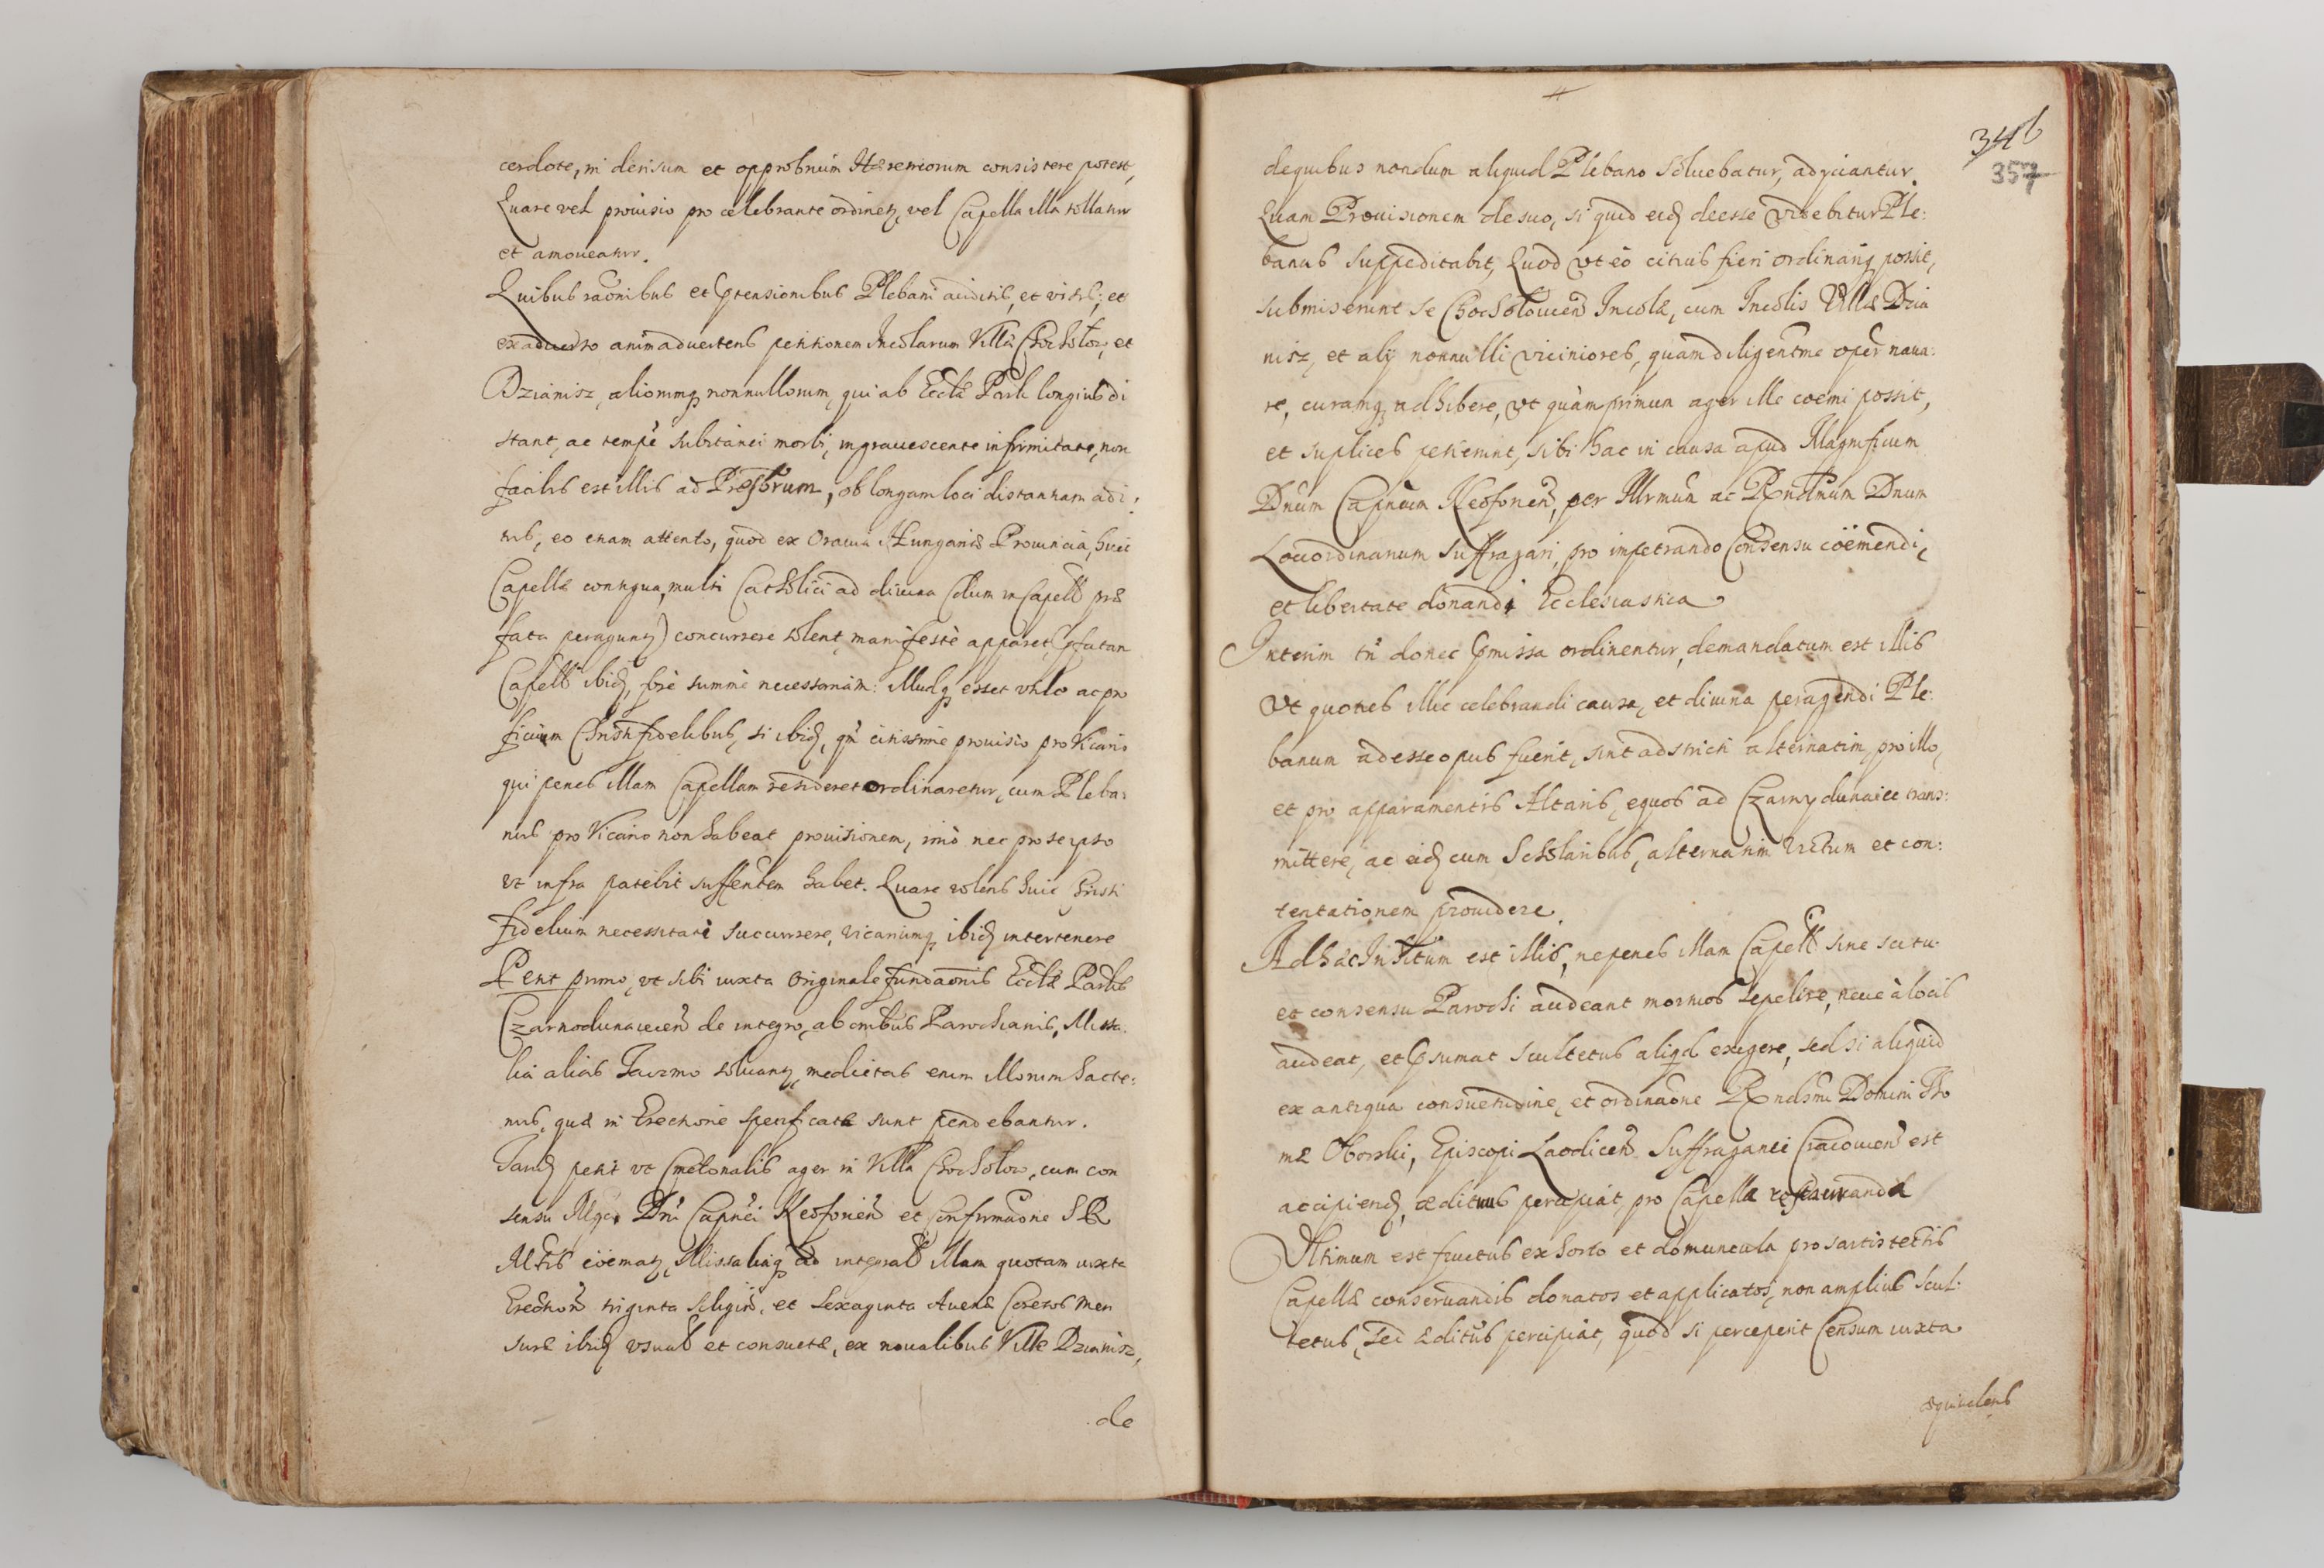 cerdote, in derisum et opprobrium Hæreticorum consistere potest,
Quare vel prouisio pro celebrante ordinetʒ, vel Capella illa tollatur
et amoueatur.
Quibus raõnibus et ꝑtensionibus Plebani auditis, et visis; et
ex aduerso animaduertens petitionem Incolarum Villæ Chocholow, et
Dzianisz, aliorumqʒ nonnullorum, qui ab Eccła Parli longius di
stant, ac tempẽ subitanei morbi, ingrauescente infirmitate, non
facilis est illis ad Presbrum, ob longam loci distantiam adi:
tus, eo etiam attento, quod ex Orauia Hungariæ Prouincia, huic
Capellæ contigua, multi Catholici ad diuina (dum in Capell præ
fata peraguntʒ) concurrere solent, manifestè apparet, ꝑfatam
Capell ibidʒ, fore summè necessariam: Illudqʒ esset vtile ac pro
ficuum Christifidelibus, si ibidʒ, qm̃ citissime prouisio pro Vicario
qui penes illam Capellam resideret ordinaretur, cum Pleba:
nus pro Vicario non habeat prouisionem, imò nec pro se ipso
vt infra patebit suffientem habet. Quare volens huic Christi
fidelium necessitati succurrere, vicariumqʒ ibidʒ intertenere
Petit primo, vt sibi iuxta originale fundaõnis Ecclæ Parlis
Czarnodunaiecen̄ de integro, ab omibus Parochianis, Missa:
lia alias Taczmo soluantʒ, medietas enim illorum hacte:
nus, quæ in Erectione specificatæ sunt pendebantur.
Tandʒ petit vt Cmetonalis ager in Villa Chocholow, cum con
sensu Mgci Dni Capnei Neoforien̄ et Confirmaõne S R
Mtis coëmatʒ, Missaliaqʒ ad integral illam quotam iuxta
Erection̄ triginta siliginʒ, et sexaginta Auenæ Coretos men
suræ ibidʒ vsual et consuetæ, ex noualibus Villæ Dzianisz,
de
346
357
de quibus nondum aliquid Plebano soluebatur, adijciantur.
Quam Prouisionem de suo, si quid eidʒ deesse videbitur Ple:
banus suppeditabit, Quod vt eò citius fieri ordinariqʒ possit,
submiserunt se Chocholouien̄ Incolæ, cum Incolis Villæ Dzia
nisz, et alij nonnulli viciniores, quam diligentme oper naua:
re, curamqʒ adhibere, vt quàm primum ager ille coëmi possit,
et suplices petierunt, sibi hac in causa apud Magnificum
Dnum Capneum Neoforien̄, per Illrmum ac Rndmum Dnum
Lociordinarium suffragari, pro impetrando Consensu coëmendi,
et libertate donandi Ecclesiastica
Interim tñ donec ꝑmissa ordinentur, demandatum est illis
Vt quoties illic celebrandi causa, et diuina peragendi Ple:
banum adesse opus fuerit, sint adstricti alternatim, pro illo,
et pro apparamentis Altaris, equos ad Czarny dunaiec trans:
mittere, ac eidʒ cum Scholaribus, alternatim victum et con:
tentationem prouidere.
Adhæc Inhitum est illis, ne penes illam Capell sine scitu
et consensu Parochi audeant mortuos sepelire, neue à locis
audeat, et ꝑsumat scultetus aliqd exigere, sed si aliquid
ex antiqua consuetudine, et ordinaõne Rndsmi Domini Tho
mæ Oborski, Episcopi Laodicen̄ Suffraganei Cracouien̄ est
accipiendʒ, ædituus percipiat, pro Capella restauranda
Vltimum est fructus ex horto et domuncula pro sartis tectis
Capellæ conseruandis donatos et applicatos, non amplius scul:
tetus, sed Æditus percipiat, quod si perceperit Censum iuxta
æquiualens